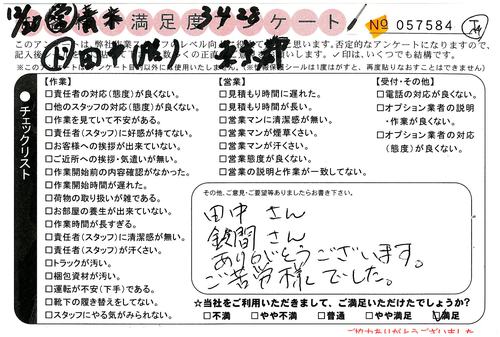 満足度 ケート
No 057584
3428
このアンケートは、弊社
※このアンケートは目的以外に使用いたしません。(※情報保護シールは1度はがすと、再度貼りなおすことはできません)
チェックリスト
【作業】
□責任者の対応(態度)が良くない。
□他のスタッフの対応(態度)が良くない。
□作業を見ていて不安がある。
□責任者(スタッフ)に好感が持てない。
□お客様への挨拶が出来ていない。
□ご近所への挨拶・気遣いが無い。
□作業開始前の内容確認がなかった。
□作業開始時間が遅れた。
□荷物の取り扱いが雑である。
□お部屋の養生が出来ていない。
□作業時間が長すぎる。
□責任者(スタッフ)に清潔感が無い。
□責任者(スタッフ)が汗くさい。
□トラックが汚い。
□梱包資材が汚い。
□運転が不安(下手)である。
□靴下の履き替えをしてない。
□スタッフにやる気がみられない。
【営業】
□見積もりに遅れた。
□見積もり時間が長い。
□営業マンに清潔感が無い。
□営業マンが煙草くさい。
□営業マンが汗くさい。
□営業態度が良くない。
□営業の説明と作業が一致してない。
【受付・その他】
□電話の対応が良くない。
□オプション業者の説明
・作業が良くない。
□オプション業者の対応
(態度)が良くない。
その他、ご意見・ご要望等ありましたらお書き下さい。
田中 さん
鈴間 さん
ありがとうございます。
ご苦労様でした。
☆当社をご利用いただきまして、ご満足いただけたでしょうか?
□不満 □やや不満 □普通 □やや満足 □満足
ご協力ありがとうございました